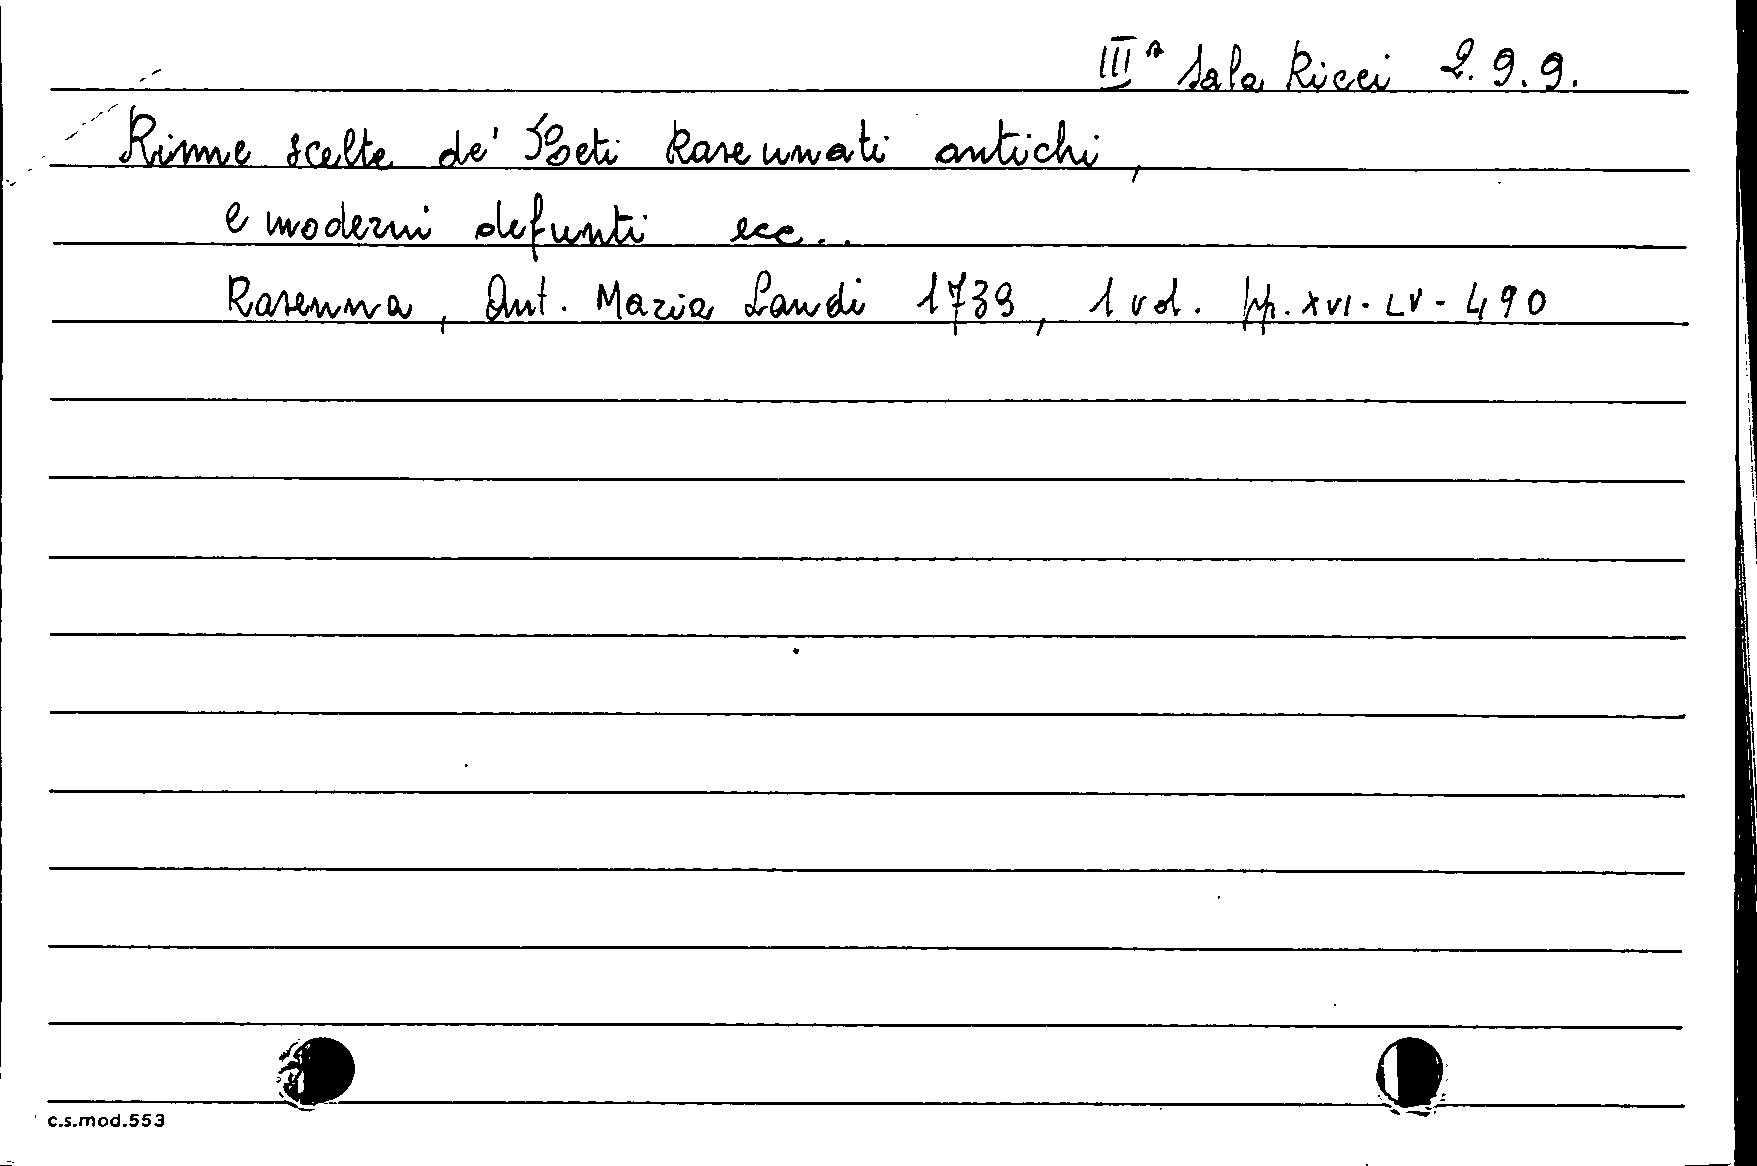 IIIª Sala Ricci 2.9.9.
Rime scelte de' Poeti Ravennati antichi,
e moderni defunti ecc..
Ravenna, Ant. Maria Landi 1739, 1 vol. pp. XVI-LV-490
c.s.mod.553